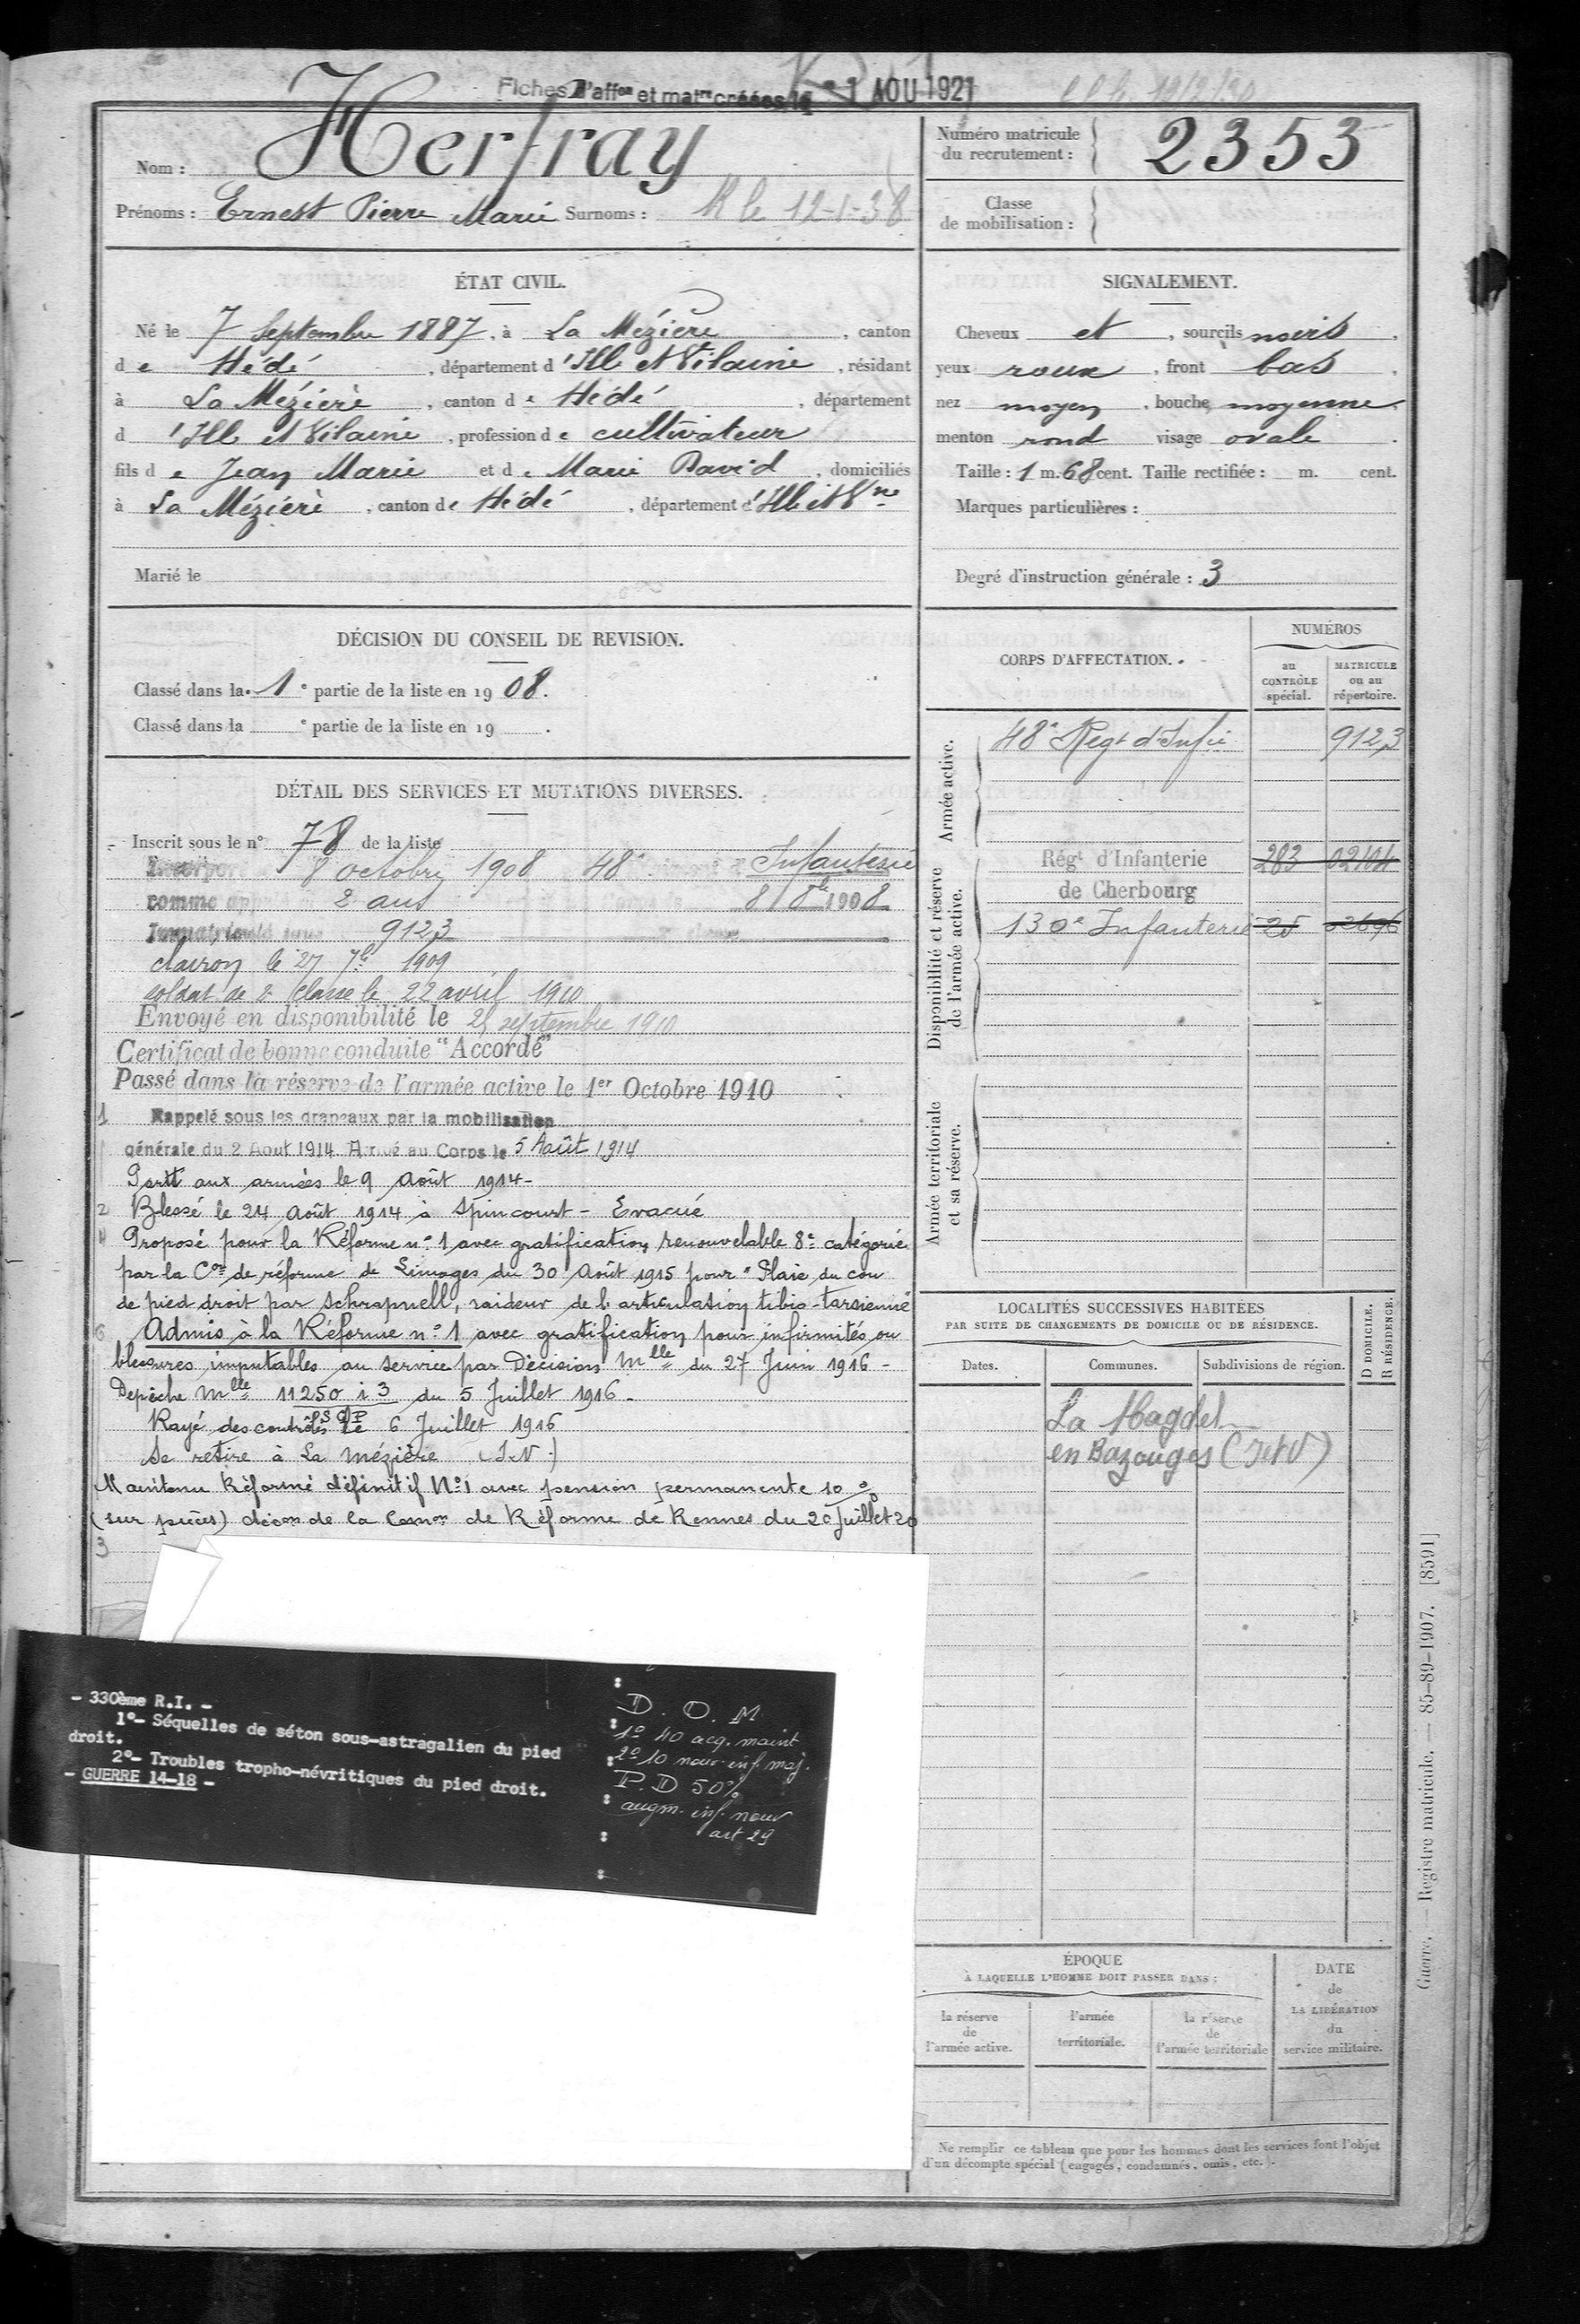 Fiches d'affon et matre créées le -1 AOU 1921
Nom : Herfray
Prénoms : Ernest Pierre Marie Surnoms : R le 12-1-38
Numéro matricule
du recrutement : 2353
Classe
de mobilisation :
ÉTAT CIVIL.
Né le 7 Septembre 1887, à La Mézière, canton
de Hédé, département d'Ille et Vilaine, résidant
à La Mézière, canton de Hédé, département
d'Ille et Vilaine, profession de cultivateur
fils de Jean Marie et de Marie David, domiciliés
à La Mézière, canton de Hédé, département d'Ille et Vne
Marié le
SIGNALEMENT.
Cheveux et, sourcils noirs.
yeux roux, front bas,
nez moyen, bouche moyenne,
menton rond visage ovale.
Taille : 1 m. 68 cent. Taille rectifiée : m. cent.
Marques particulières :
Degré d'instruction générale : 3
DÉCISION DU CONSEIL DE REVISION.
Classé dans la 1e partie de la liste en 1908.
Classé dans la e partie de la liste en 19 .
DÉTAIL DES SERVICES ET MUTATIONS DIVERSES.
Inscrit sous le n° 78 de la liste
Incorporé 8 octobre 1908 48e Infanterie
comme appelé 2 ans 8 8bre 1908
Immatriculé sous 9123
clairon le 27 7bre 1909
soldat de 2e classe le 22 avril 1910
Envoyé en disponibilité le 25 septembre 1910
Certificat de bonne conduite "Accordé"
Passé dans la réserve de l'armée active le 1er Octobre 1910
1 Rappelé sous les drapeaux par la mobilisation
générale du 2 Août 1914 Arrivé au Corps le 5 Août 1914
Parti aux armées le 9 Août 1914-
2 Blessé le 24 Août 1914 à Spincourt - Evacué
4 Proposé pour la Réforme n° 1 avec gratification renouvelable 8e catégorie
par la Con de réforme de Limoges du 30 Août 1915 pour "Plaie du cou
de pied droit par schrapnell, raideur de l'articulation tibio-tarsienne"
6 Admis à la Réforme n° 1 avec gratification pour infirmités ou
blessures imputables au service par Décision Mlle du 27 Juin 1916 -
Depêche Mlle 11250 i 3 du 5 Juillet 1916 -
PSCP
Rayé des contrôles le 6 Juillet 1916
Se retire à La Mézière (I-V-)
Maintenu Réformé définitif N°1 avec pension permanente 10 %
(sur pièces) déción de la Comon de Réforme de Rennes du 20 Juillet 20
3
- 330ème R.I. -
1°- Séquelles de séton sous-astragalien du pied
droit.
2°- Troubles tropho-névritiques du pied droit.
- GUERRE 14-18 -
D. O. M
1° 40 acq. maint
2° 10 nouv. inf. maj.
P.D 50%
augm. inf. nouv
art 29
CORPS D'AFFECTATION.
NUMÉROS
au
CONTRÔLE
spécial.
MATRICULE
ou au
répertoire.
Armée active.
48e Regt d'Infie 9123
Disponibilité et réserve
de l'armée active.
Régt d'Infanterie 283 02104
de Cherbourg
130e Infanterie 25 02696
Armée territoriale
et sa réserve.
LOCALITÉS SUCCESSIVES HABITÉES
PAR SUITE DE CHANGEMENTS DE DOMICILE OU DE RÉSIDENCE.
Dates.
Communes.
Subdivisions de région.
D DOMICILE.
R RÉSIDENCE.
La Magdel
en Bazouges (I et V)
ÉPOQUE
À LAQUELLE L'HOMME DOIT PASSER DANS :
la réserve
de
l'armée active.
l'armée
territoriale.
la réserve
de
l'armée territoriale
DATE
de
LA LIBÉRATION
du
service militaire.
Ne remplir ce tableau que pour les hommes dont les services font l'objet
d'un décompte spécial (engagés, condamnés, omis, etc.).
Guerre. — Registre matricule. — 85-89-1907. [8591]